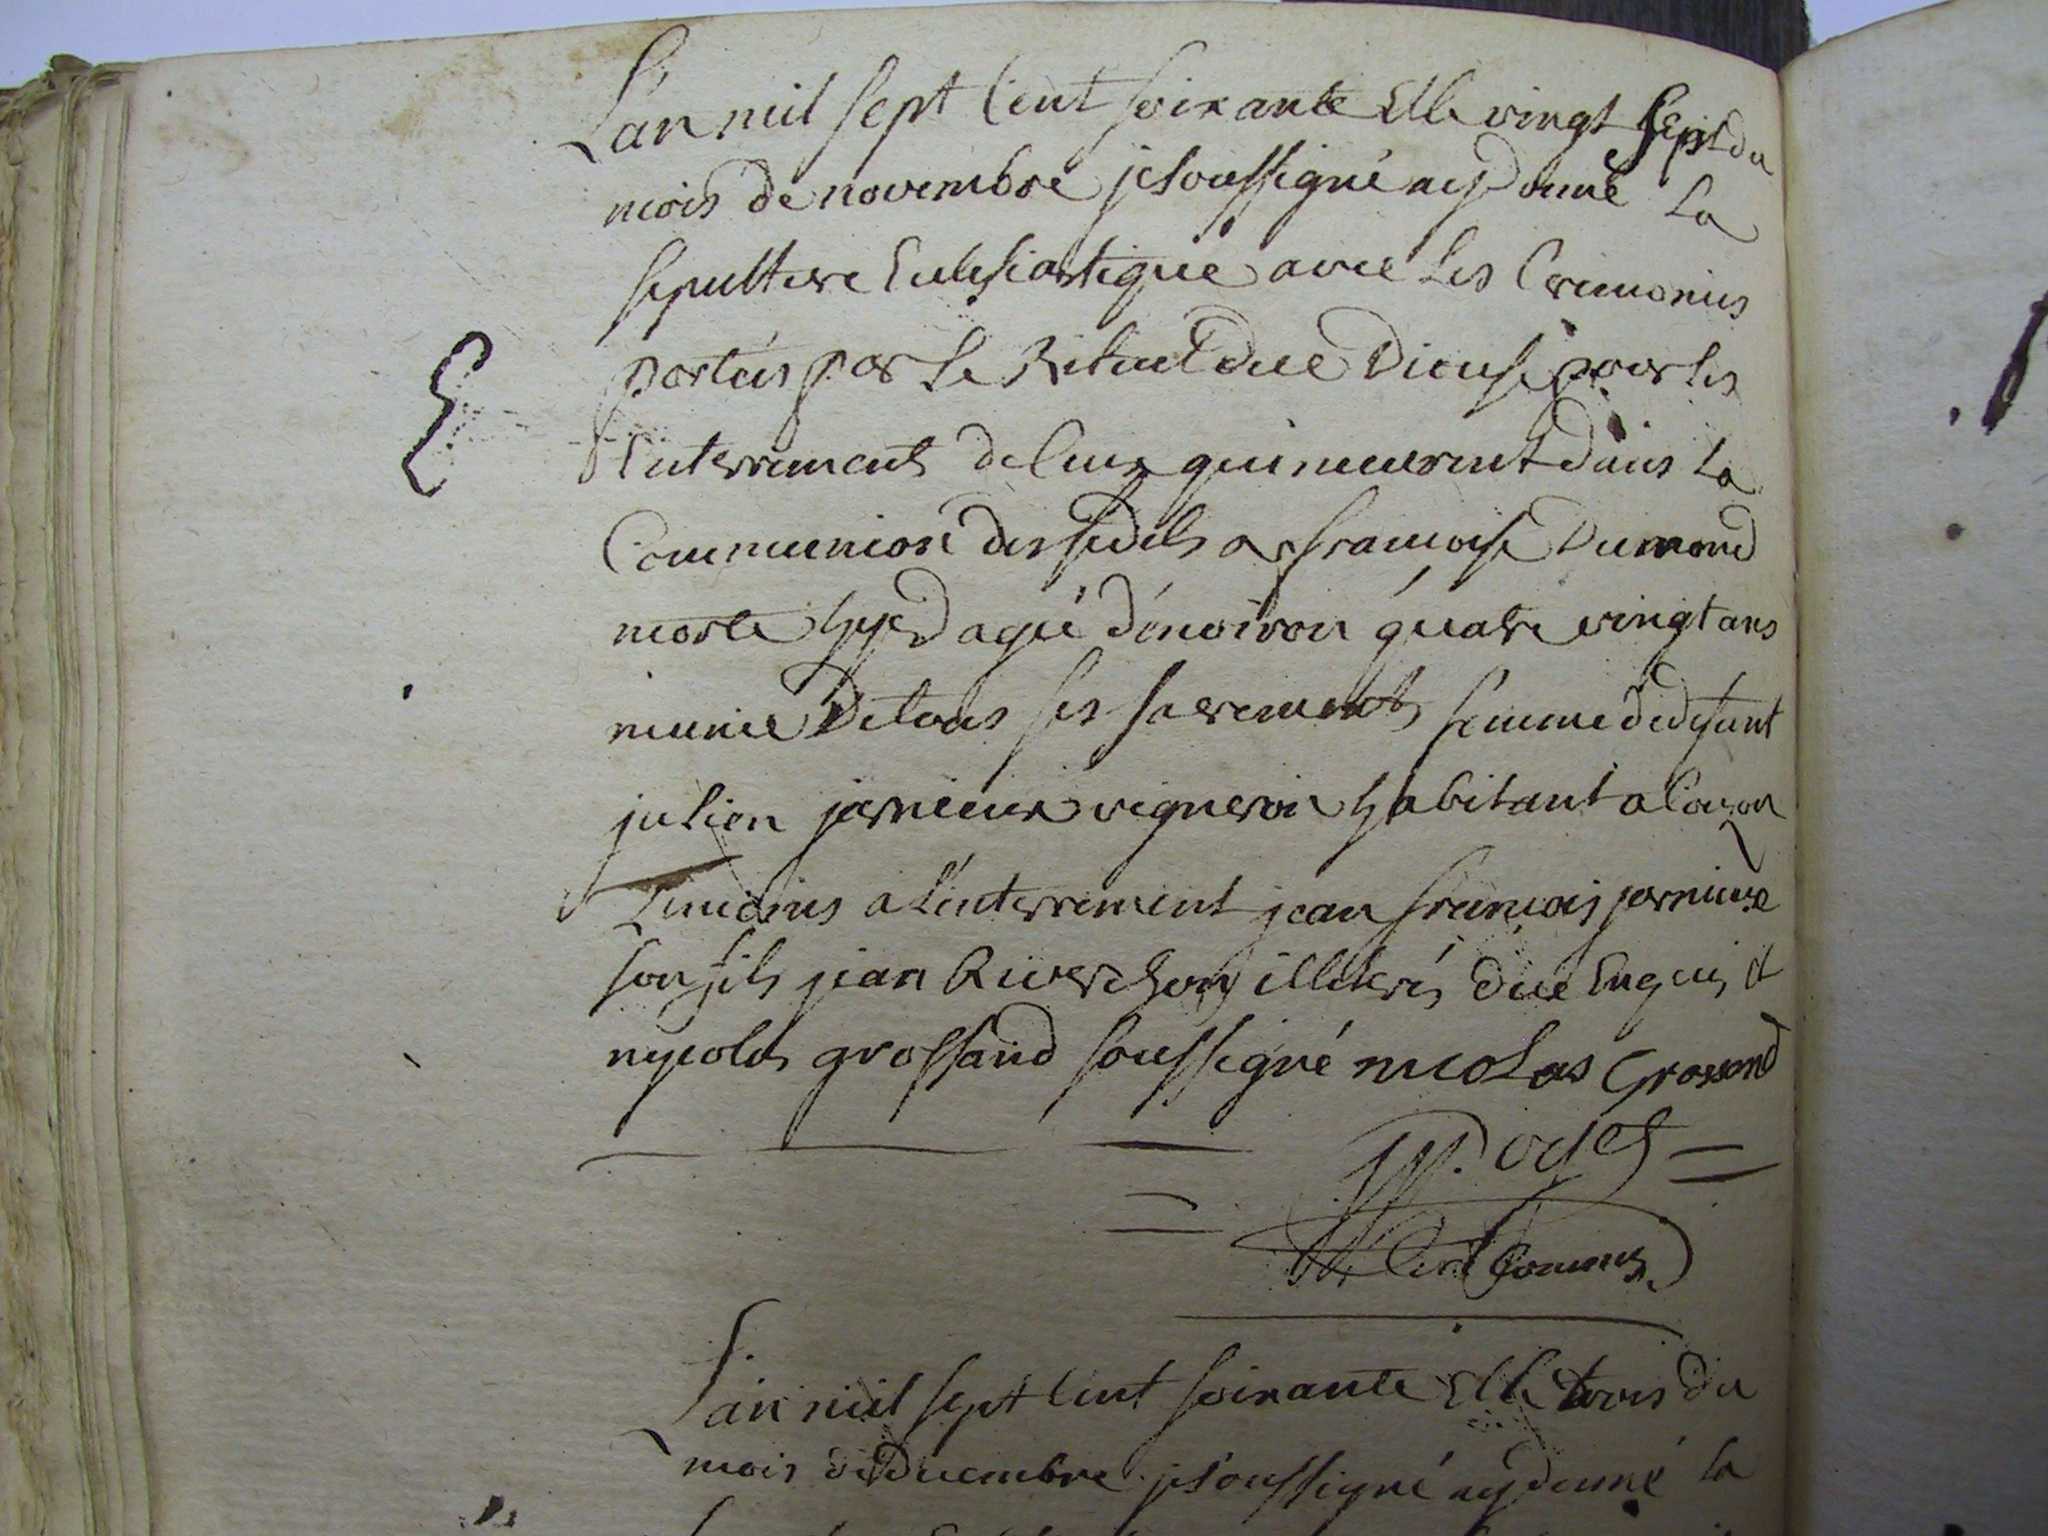 L'an mil sept Cent soixante Et le vingt sept du
mois de novembre je soussigné ay donné La
sepulture Eclesiastique avec Les Ceremonies
portées par Le Rituel due Diocese pour les
Enterrements de Ceux qui meurent dans La
Communion des fidels a francoise Dumond
morte hyer agée d'énoiron quatre vingt ans
munie De tous ses sacrements femme de defunt
julien jarnieux vigneron habitant a Couzon
temoins a L'enterrement jean francois jarnieux
son fils jean Riverchon illiterés due Enquis et
nycolas grossand soussigné nicolas Grossand

L'an mil sept Cent soixante Et le trois du
mois de decembre je soussigné ay donné La